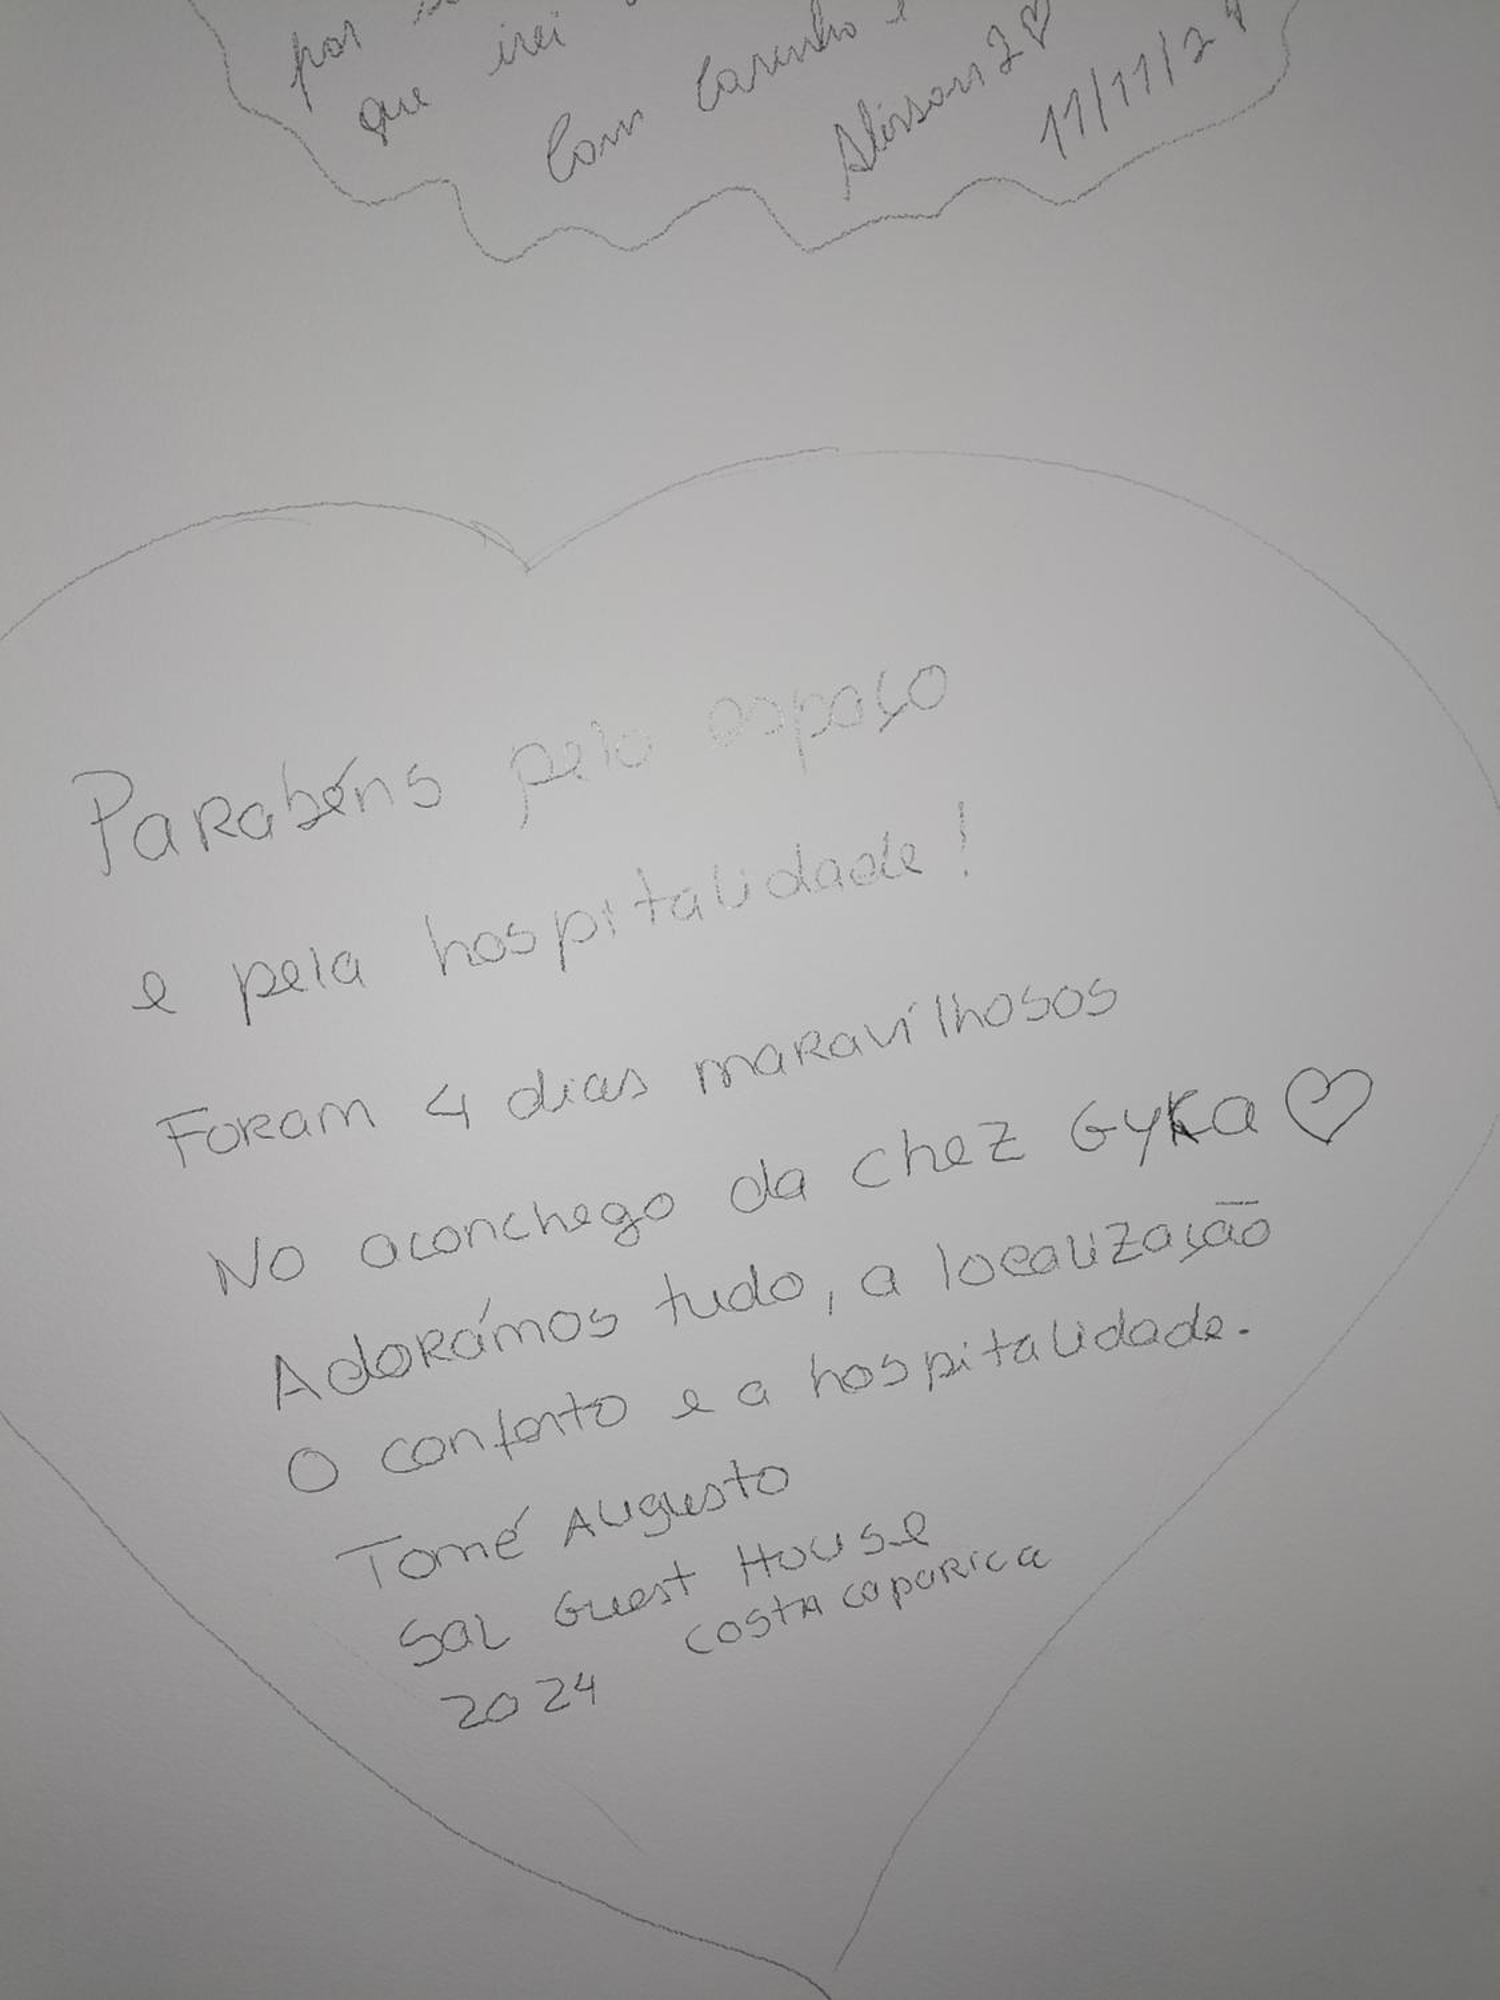 por
que irei
Com Carinho e
Alisson
11/11/24
Parabéns pelo espaço
e pela hospitalidade!
Foram 4 dias maravilhosos
No aconchego da chez Gyka ♡
Adorámos tudo, a localização
O conforto e a hospitalidade.
Tomé Augusto
Sal Guest House
Costa Caparica
2024